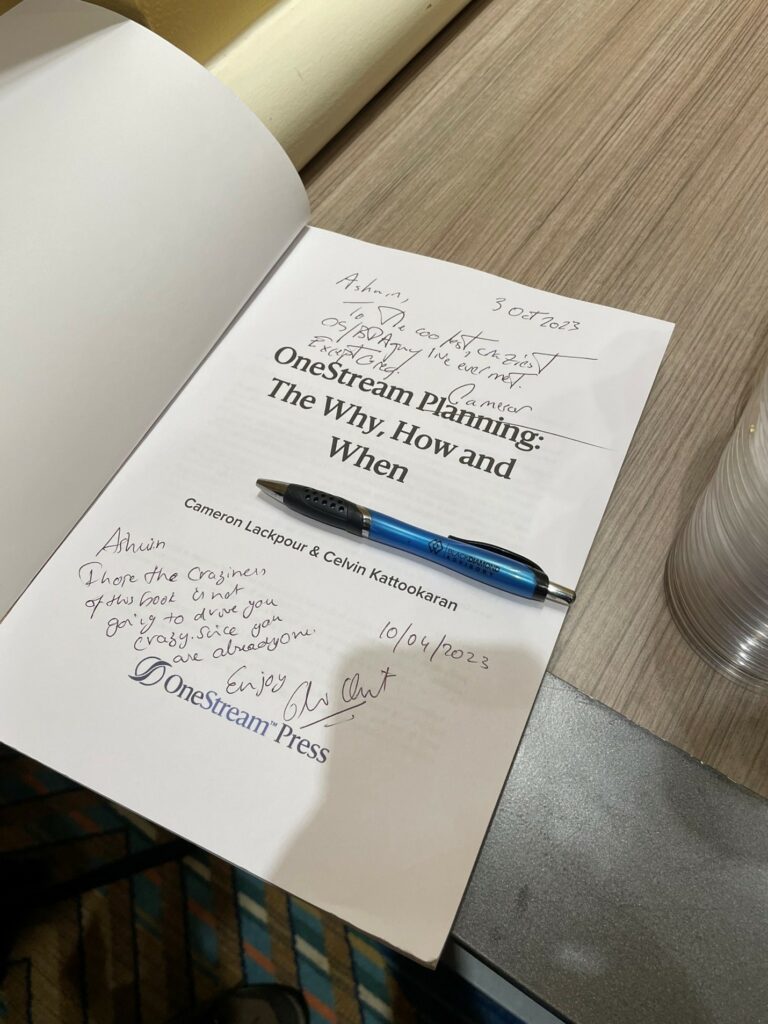 Ashwin,
3 Oct 2023
To The coolest, craziest
OS/BPA guy I've ever met.
Except Cred.
Cameron
OneStream Planning:
The Why, How and
When
Cameron Lackpour & Celvin Kattookaran
BLACKDIAMOND
ADVISORY
Ashwin
I hope the craziness
of this book is not
going to drive you
crazy. Since you
are already one.
10/04/2023
Enjoy
OneStream™ Press